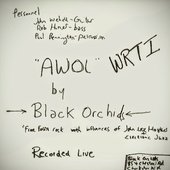 Personnel
John Wehdt - Guitar
Rob Huner - bass
Paul Pennington - percussion
"AWOL" WRTI
by
Black Orchids
Free form rock with influences of John Lee Hooker
Electronic Jazz
Recorded Live
Black Orchids